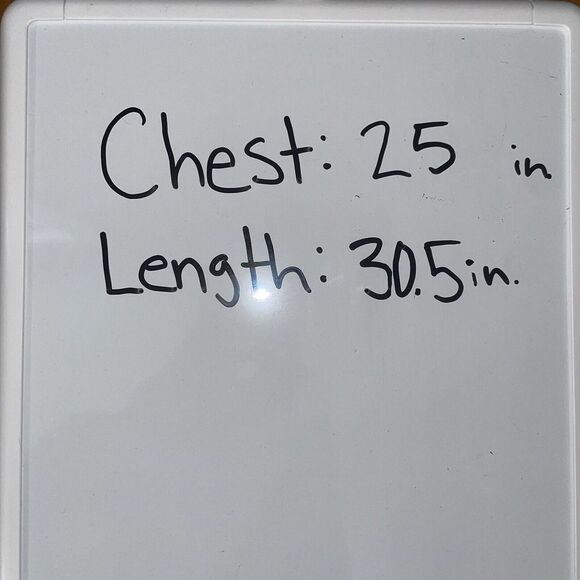 Chest: 25 in.
Length: 30.5 in.